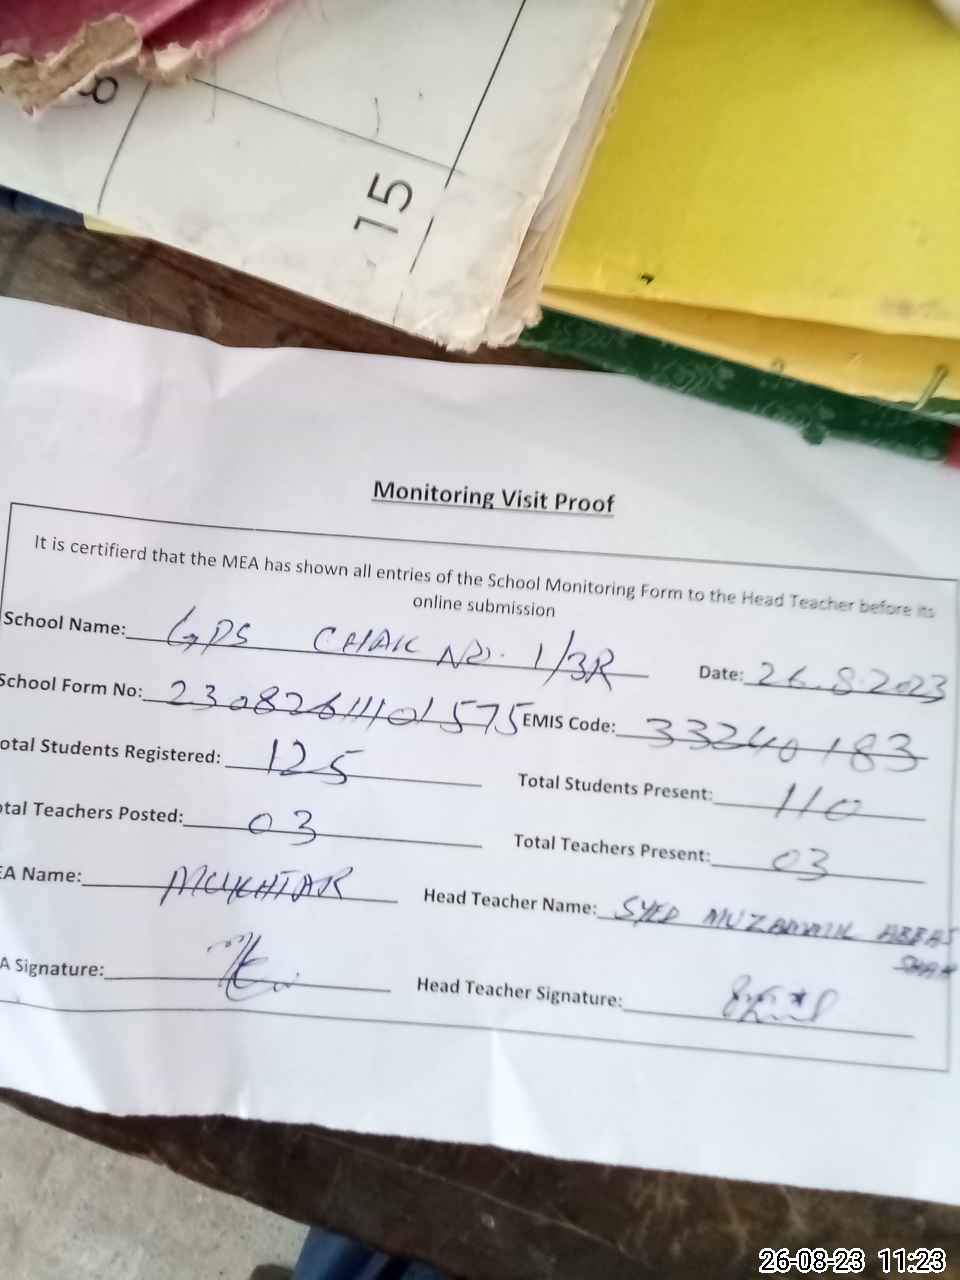 8
15
Monitoring Visit Proof
It is certifierd that the MEA has shown all entries of the School Monitoring Form to the Head Teacher before its
online submission
School Name: GPS CHAK NO. 1/3R Date: 26.8.2023
School Form No: 230826111101575 EMIS Code: 33240183
otal Students Registered: 125 Total Students Present: 110
otal Teachers Posted: 03 Total Teachers Present: 03
EA Name: MUKHTAR Head Teacher Name: SYED MUZAMMIL ABBAS
SHAH
A Signature: Head Teacher Signature:
26-08-23 11:23